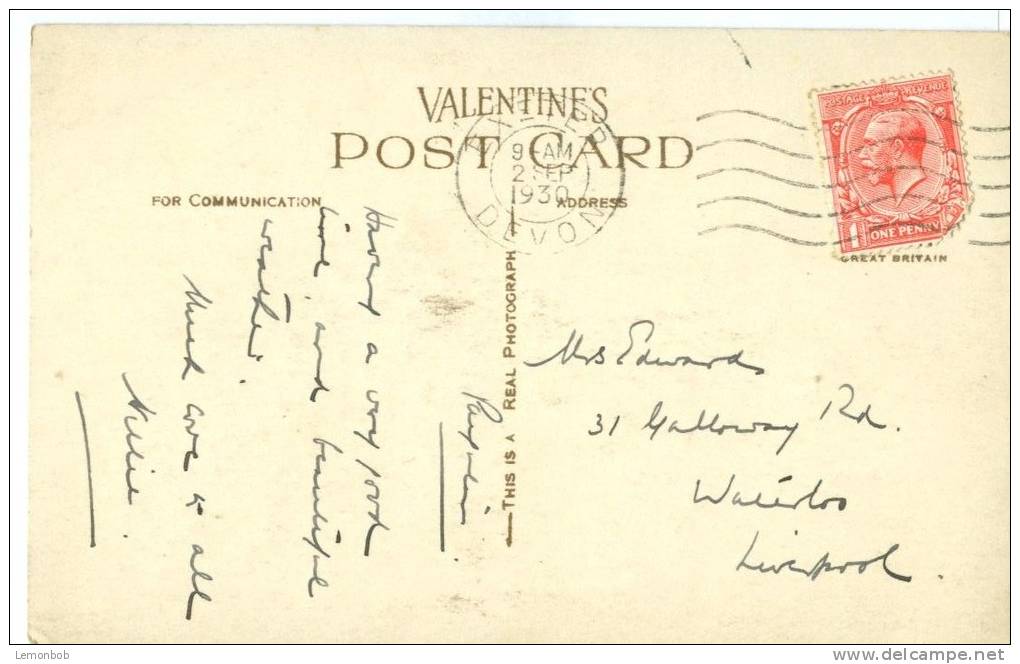 VALENTINE'S
POST CARD
FOR COMMUNICATION
ADDRESS
EXETER
9-AM
2 SEP
1930
DEVON
POSTAGE REVENUE
1 ONE PENNY
GREAT BRITAIN
THIS IS A REAL PHOTOGRAPH
Having a very good
time, and beautiful
weather.
Much love to all
Nellie.
Mrs Edwards
31 Galloway Rd.
Waterloo
Liverpool.
Lemonbob
www.delcampe.net